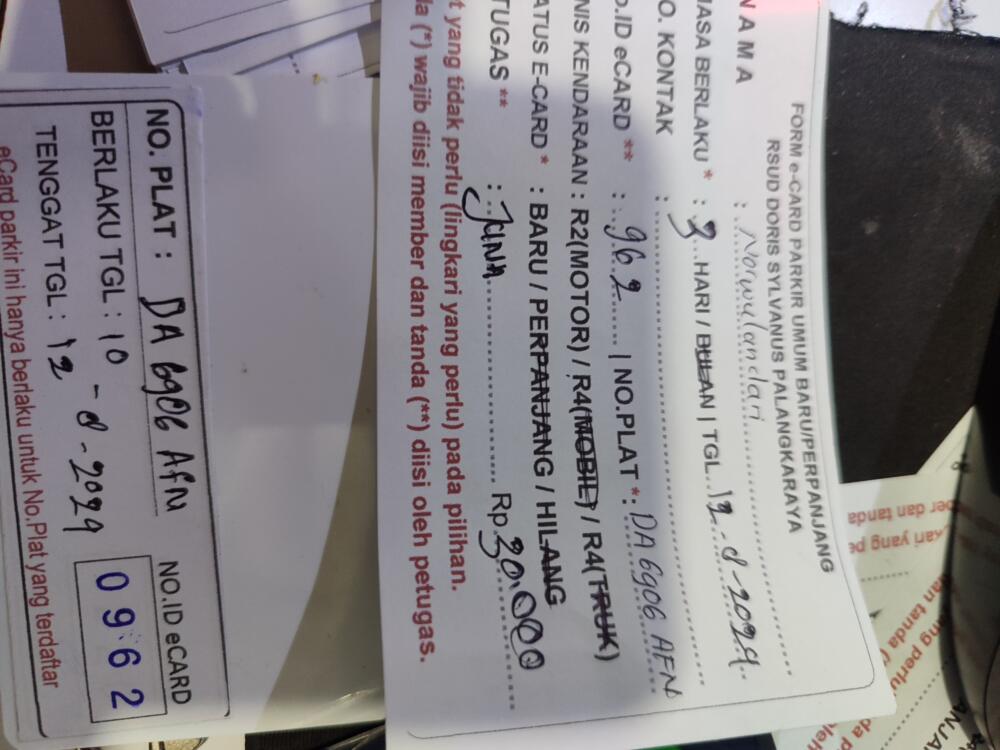 FORM e-CARD PARKIR UMUM BARU/PERPANJANG
RSUD DORIS SYLVANUS PALANGKARAYA
NAMA : Norwulandari
MASA BERLAKU * : 3 HARI / BULAN | TGL. 12-8-2024
O. KONTAK :
o.ID eCARD ** : 962 | NO.PLAT *: DA 6906 AFN
NIS KENDARAAN : R2(MOTOR) / R4(MOBIL) / R4(TRUK)
ATUS E-CARD * : BARU / PERPANJANG / HILANG
TUGAS ** : JUNA Rp 30.000
t yang tidak perlu (lingkari yang perlu) pada pilihan.
da (*) wajib diisi member dan tanda (**) diisi oleh petugas.
NO. PLAT : DA 6906 AFN
NO.ID eCARD
BERLAKU TGL : 10-8-2024
0962
TENGGAT TGL : 12
eCard parkir ini hanya berlaku untuk No.Plat yang terdaftar
ber dan tanda
kari yang pe
dan tanda
ang perlu
ANJA